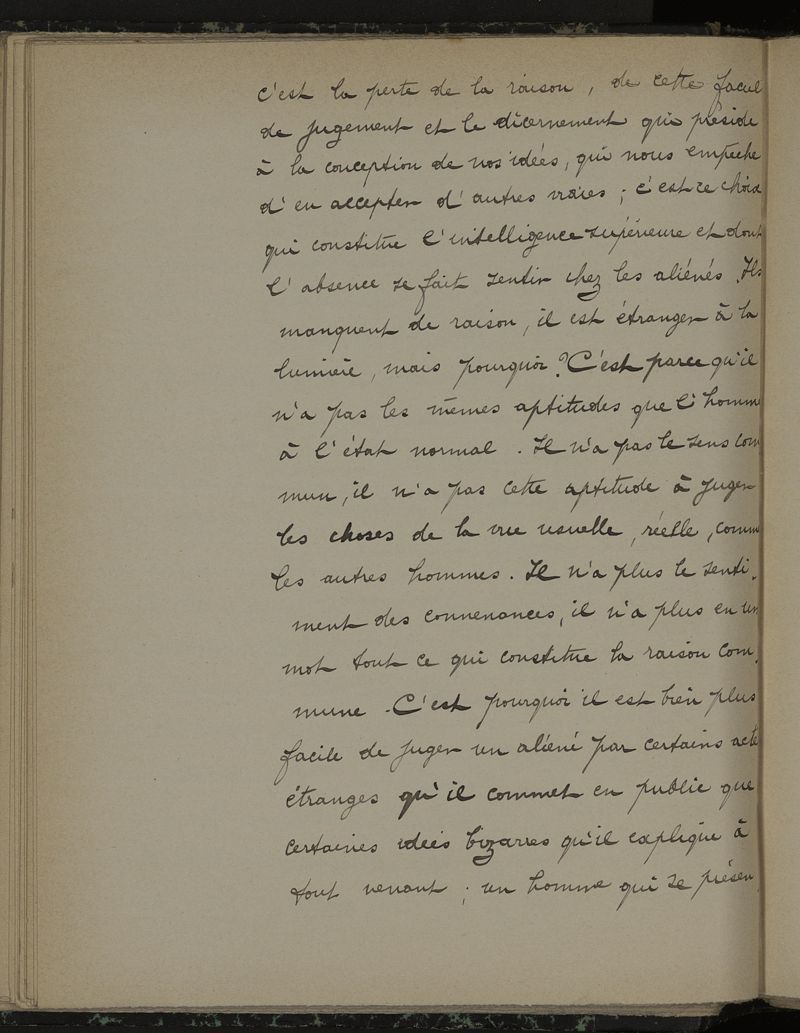 c'est la perte de la raison, de cette facul
de jugement et le dicernement qui préside
à la conception de nos idées, qui nous empêche
d'en accepter d'autres vraies ; c'est ce choix
qui constitue l'intelligence supérieure et dont
l'absence se fait sentir chez les aliénés. Ils
manquent de raison, il est étranger à la
lumière, mais pourquoi ? C'est parce qu'il
n'a pas les mêmes aptitudes que l'homme
à l'état normal. Il n'a pas le sens com
mun, il n'a pas cette aptitude à juger
les choses de la vie usuelle, réelle, comm
les autres hommes. Il n'a plus le senti-
ment des convenances, il n'a plus en un
mot tout ce qui constitue la raison com-
mune. C'est pourquoi il est bien plus
facile de juger un aliéné par certains acte
étranges qu'il commet en public que
certaines idées bizarres qu'il explique à
tout venant ; un homme qui se présen